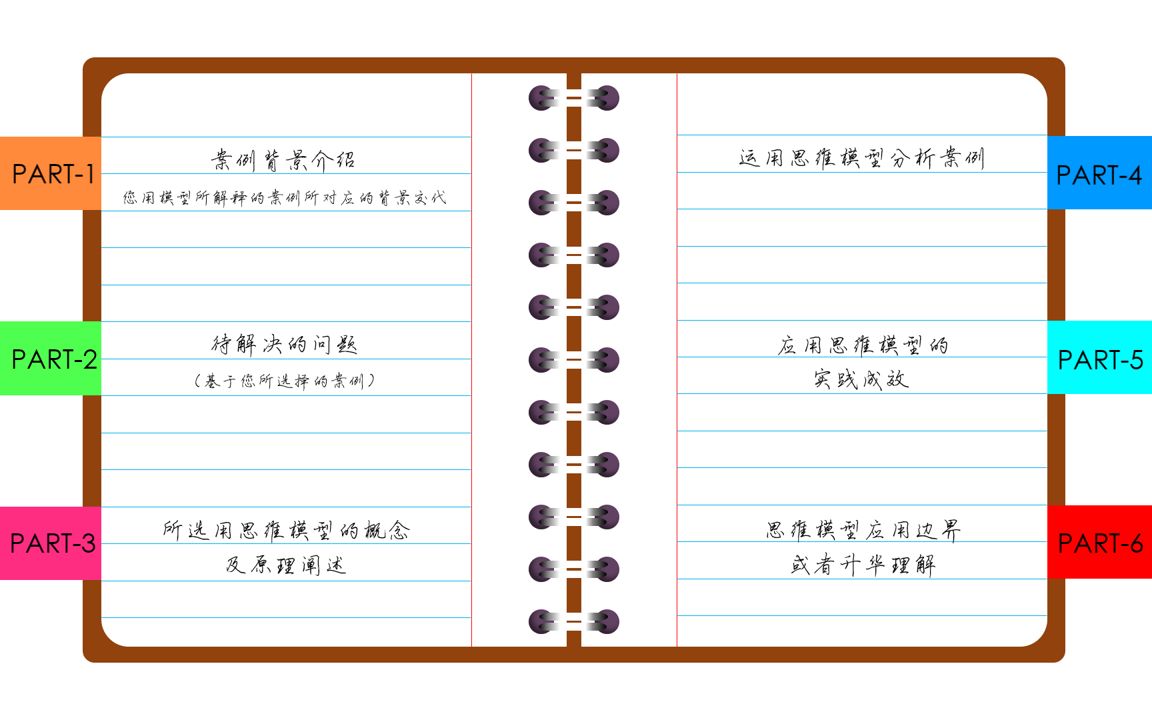 PART-1
案例背景介绍
您用模型所解释的案例所对应的背景交代
PART-2
待解决的问题
（基于您所选择的案例）
PART-3
所选用思维模型的概念
及原理阐述
PART-4
运用思维模型分析案例
PART-5
应用思维模型的
实践成效
PART-6
思维模型应用边界
或者升华理解